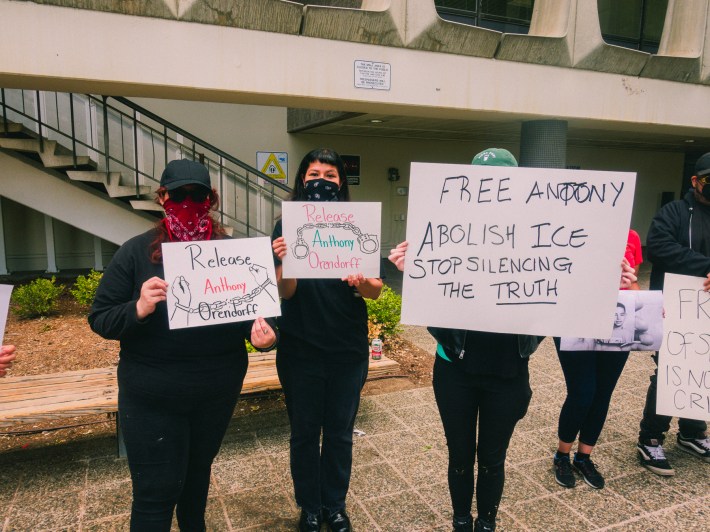 Release
Anthony
Orendorff
Release
Anthony
Orendorff
FREE ANTONY
ABOLISH ICE
STOP SILENCING
THE TRUTH
OF S
IS NO
CRI